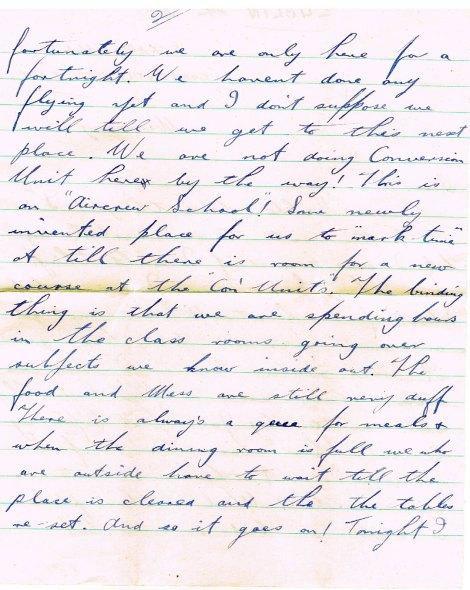 2
fortunately we are only here for a
fortnight. We havent done any
flying yet and I don't suppose we
will till we get to this next
place. We are not doing Conversion
Unit here by the way! This is
an "Aircrew School"! Some newly
invented place for us to "mark-time"
at till there is room for a new
course at the "Con' Units". The binding
thing is that we are spending hours
in the class rooms going over
subjects we know inside out. The
food and Mess are still very duff
There is always a queue for meals &
when the dining room is full we who
are outside have to wait till the
place is cleared and the the tables
re-set. And so it goes on! Tonight I